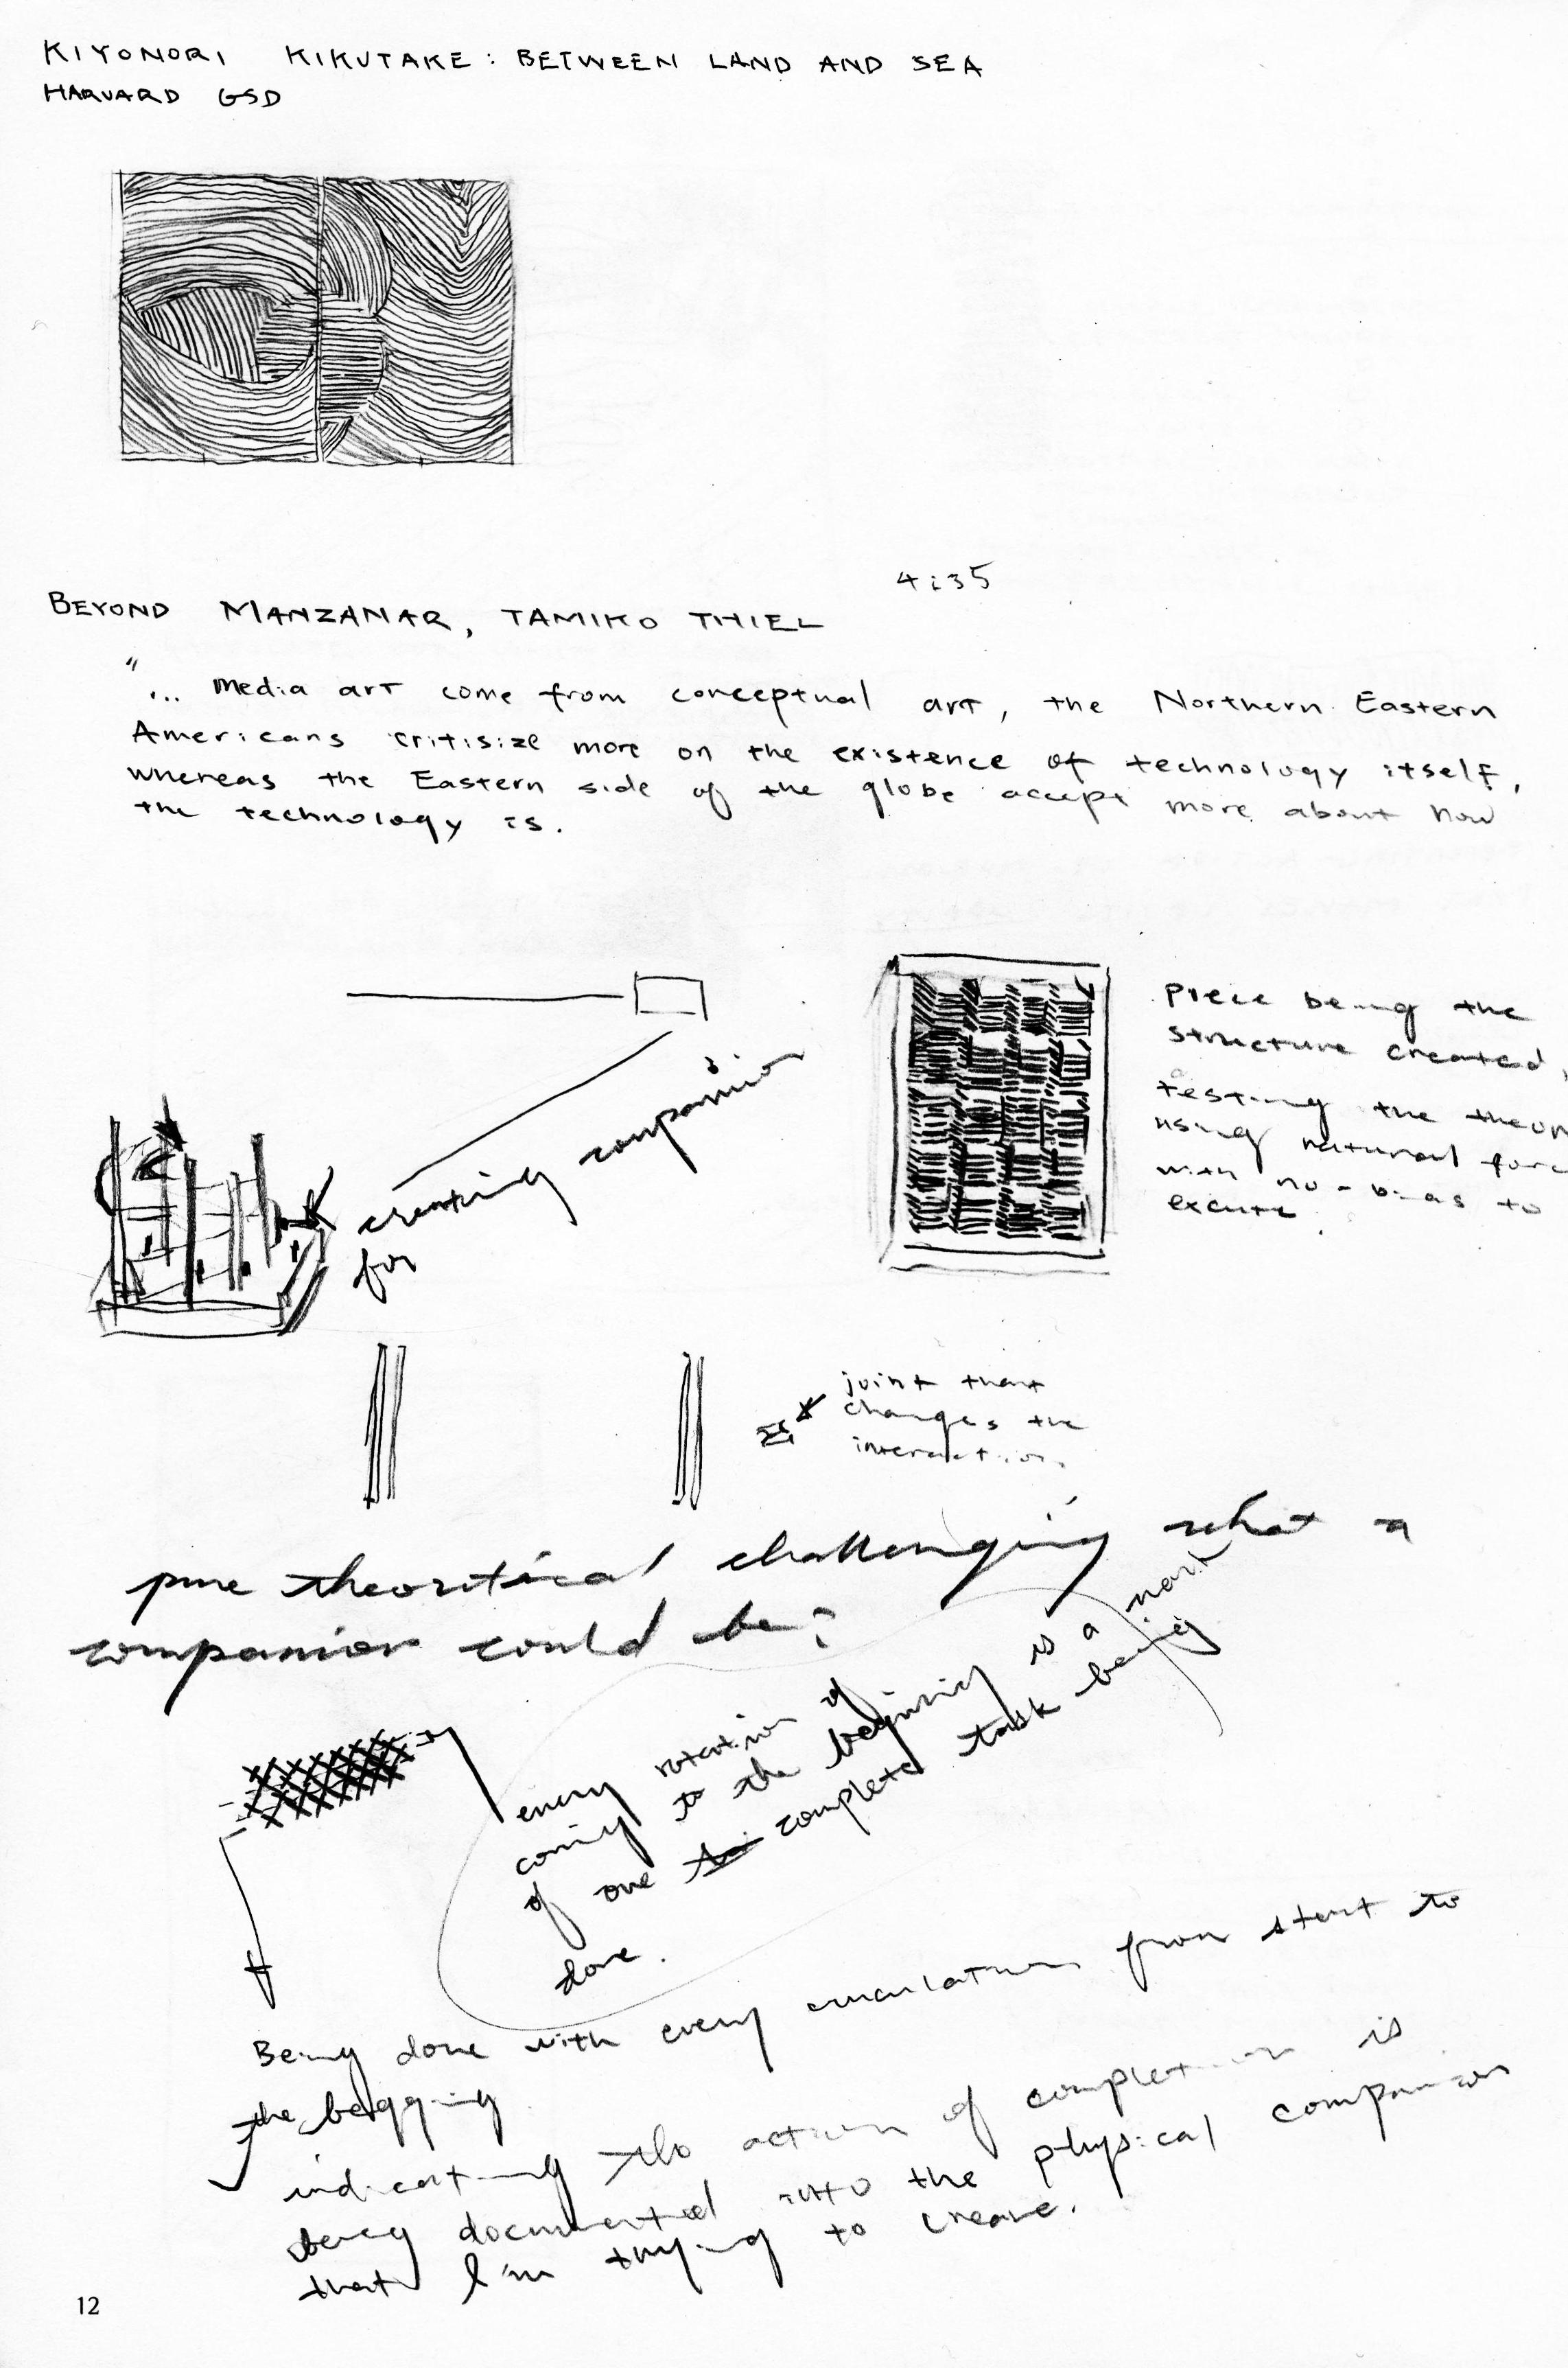 KIYONORI KIKUTAKE: BETWEEN LAND AND SEA
HARVARD GSD
4:35
BEYOND MANZANAR, TAMIKO THIEL
"... Media art come from conceptual art, the Northern Eastern
Americans critisize more on the existence of technology itself,
whereas the Eastern side of the globe accept more about how
the technology is.
Piece being the
structure created,
testing the theor
using natural forc
with no-bias to
excute.
creating companion
for
joint that
changes the
interaction.
pure theoritical challenging what a
companion could be?
every rotation of
coming to the begining is a mark
of one complete task being
done.
Being done with every circulation from start to
the begging
indicating the action of completion is
being documented into the physical companion
that I'm trying to create.
12